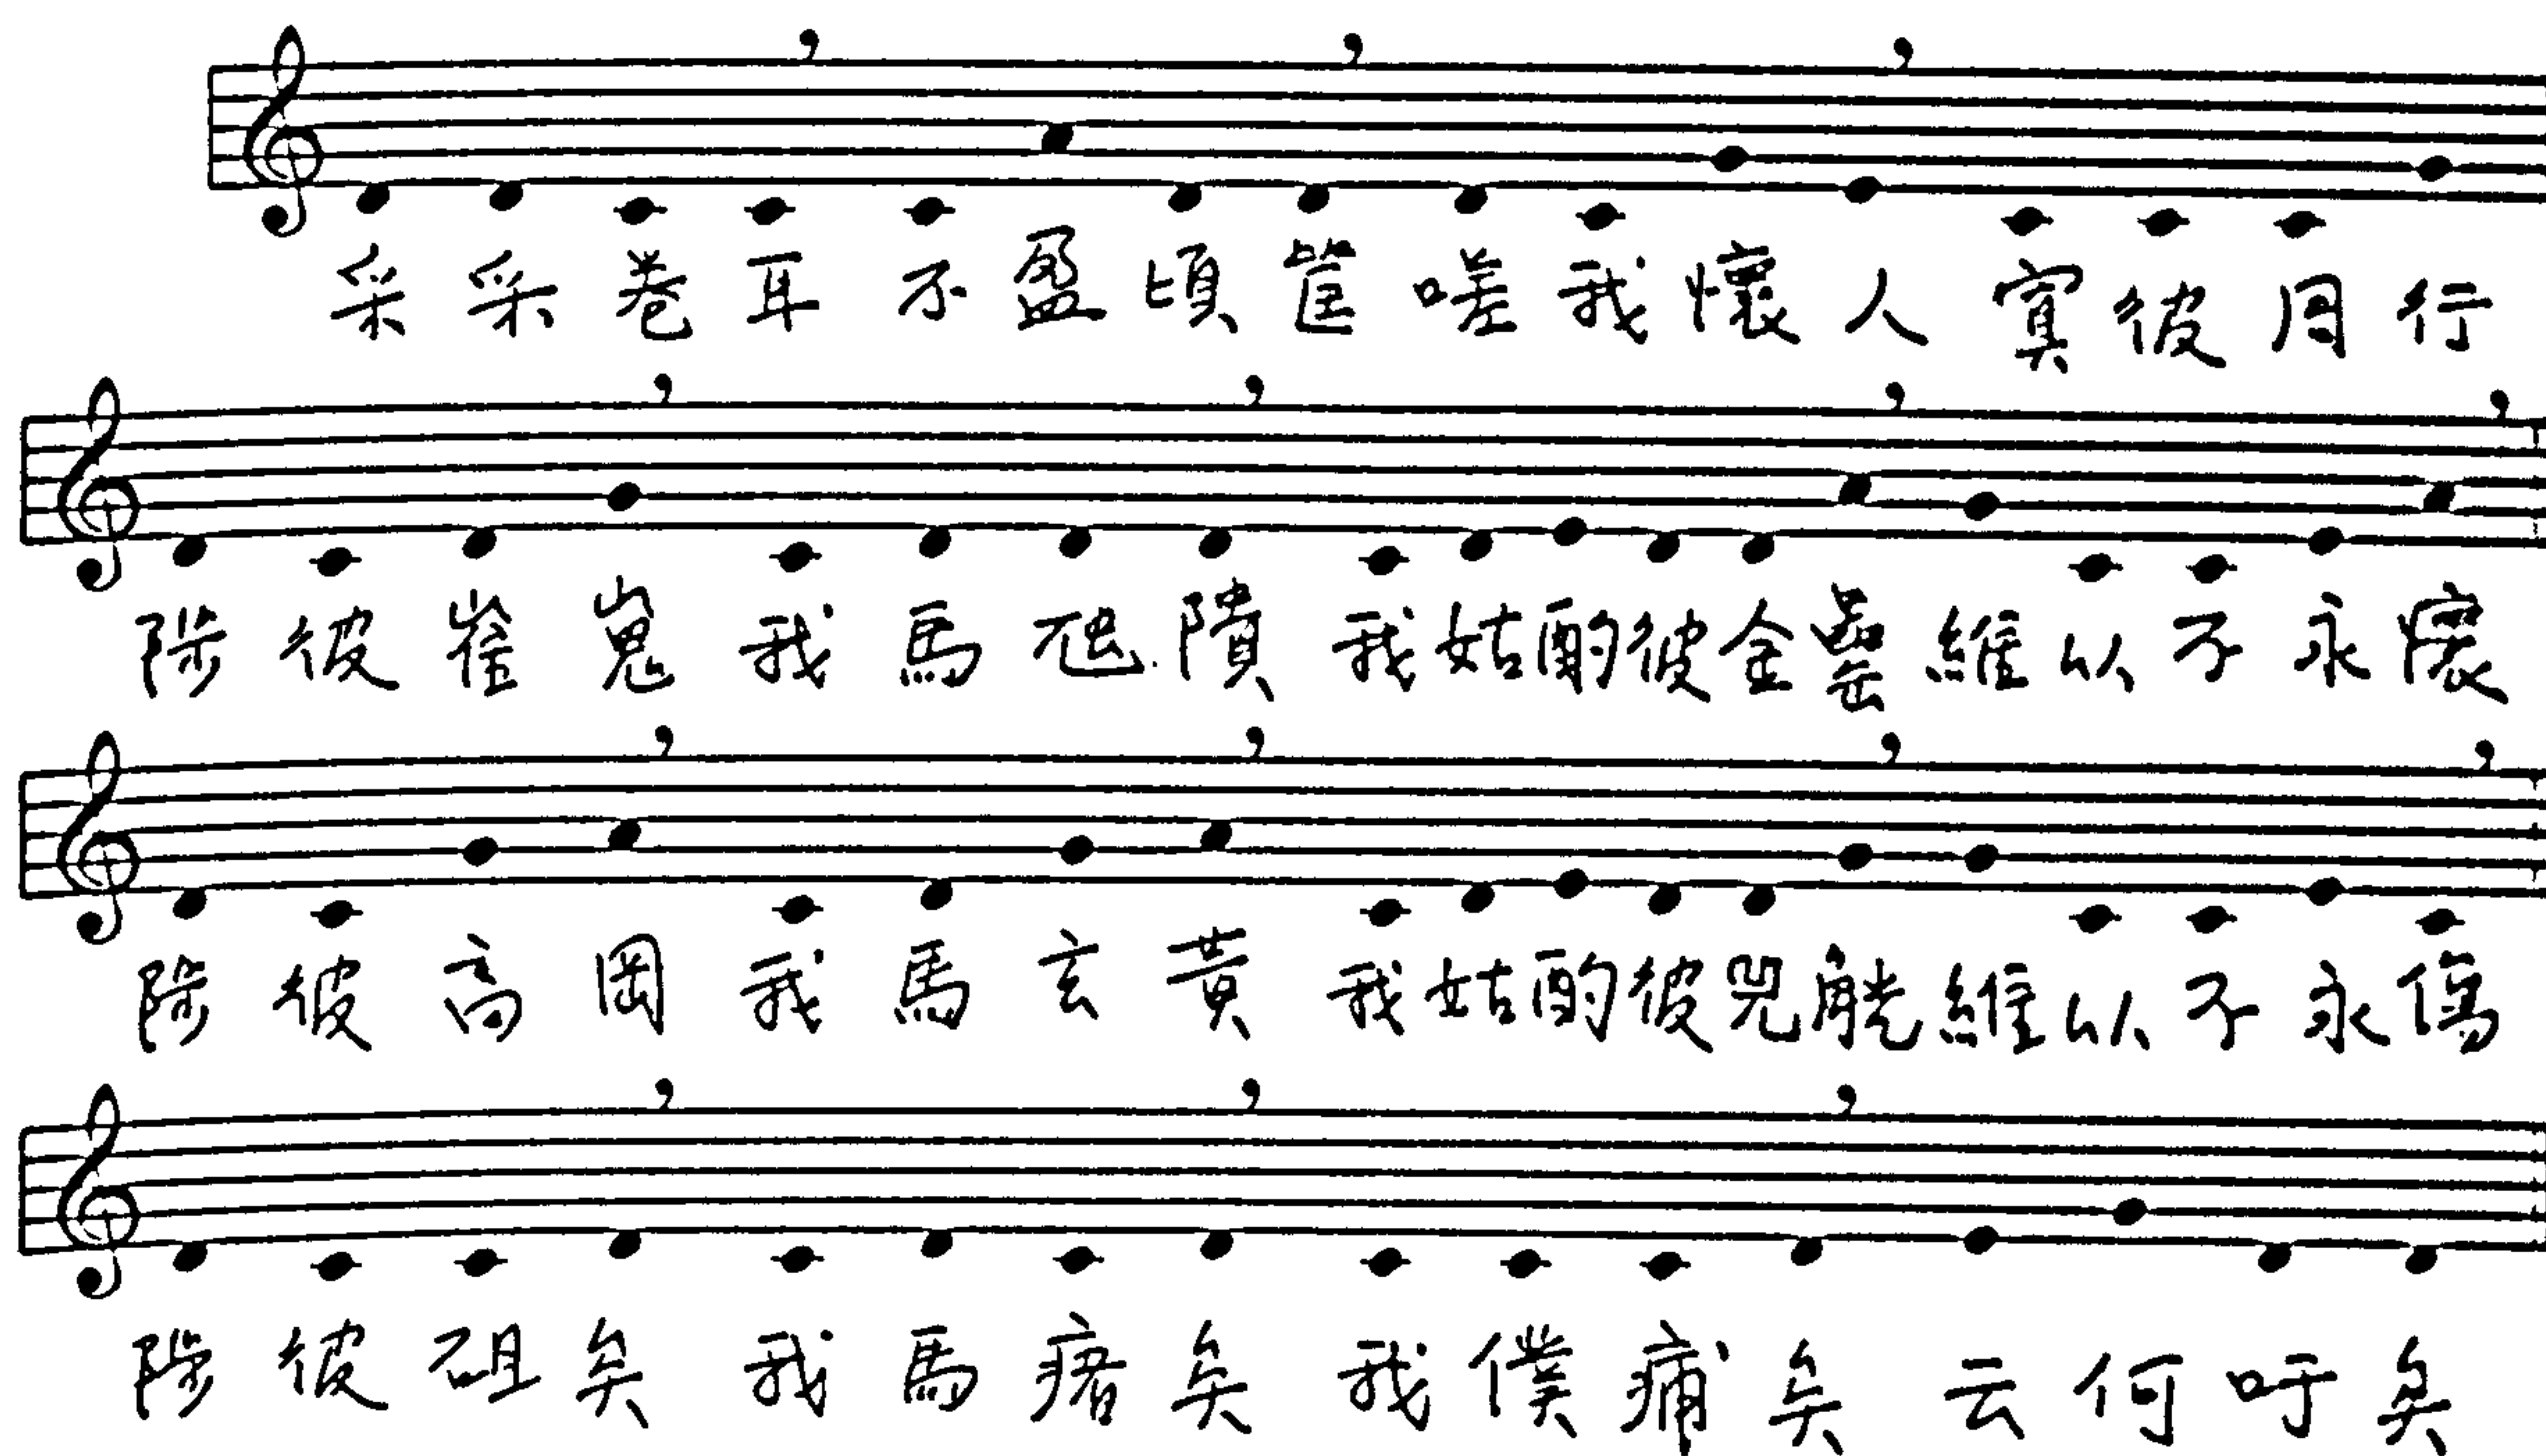 采采卷耳不盈頃筐嗟我懷人寘彼周行
陟彼崔嵬我馬虺隤我姑酌彼金罍維以不永懷
陟彼高岡我馬玄黃我姑酌彼兕觥維以不永傷
陟彼砠矣我馬瘏矣我僕痡矣云何吁矣